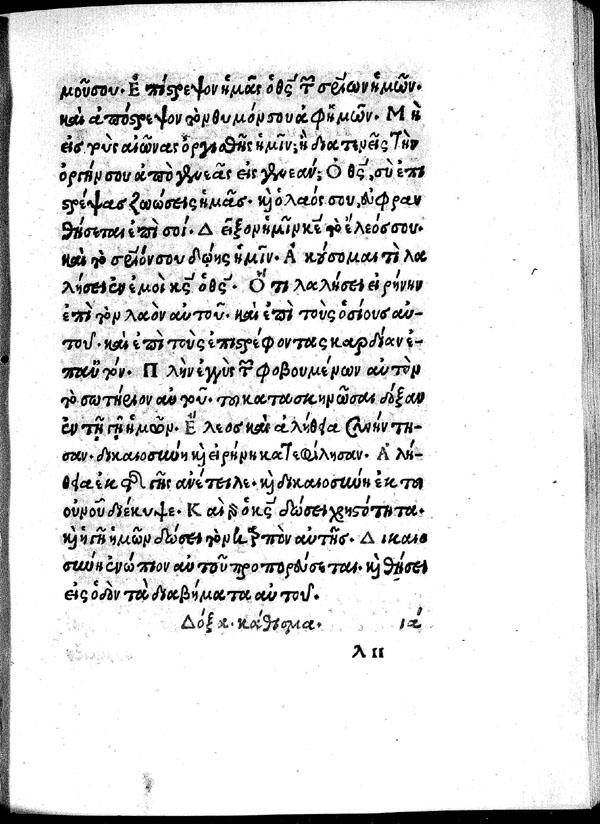 μοῦ σου. Ἐπίστρεψον ἡμᾶς ὁ θς̅ τῶν σρ̅ιων ἡμῶν.
καὶ ἀπόστρεψον τὸν θυμόν σου ἀφ' ἡμῶν. Μὴ
εἰς τοὺς αἰῶνας ὀργισθῇς ἡμῖν; ἢ διατενεῖς τὴν
ὀργήν σου ἀπὸ γενεᾶς εἰς γενεάν; Ὁ θς̅, σὺ ἐπι
στρέψας ζωώσεις ἡμᾶς. καὶ ὁ λαός σου, εὐφραν
θήσεται ἐπὶ σοί. Δεῖξον ἡμῖν κε̅ τὸ ἔλεός σου.
καὶ τὸ σρ̅ιόν σου δῴης ἡμῖν. Ἀκούσομαι τί λα
λήσει ἐν ἐμοὶ κς̅ ὁ θς̅. Ὅτι λαλήσει εἰρήνην
ἐπὶ τὸν λαὸν αὐτοῦ. καὶ ἐπὶ τοὺς ὁσίους αὐ-
τοῦ. καὶ ἐπὶ τοὺς ἐπιστρέφοντας καρδίαν ἐ-
π' αὐτόν. Πλὴν ἐγγὺς τῶν φοβουμένων αὐτὸν
τὸ σωτήριον αὐτοῦ. τοῦ κατασκηνῶσαι δόξαν
ἐν τῇ γῇ ἡμῶν. Ἔλεος καὶ ἀλήθεια συνήντη-
σαν. δικαιοσύνη καὶ εἰρήνη κατεφίλησαν. Ἀλή-
θεια ἐκ τῆς γῆς ἀνέτειλε. καὶ δικαιοσύνη ἐκ τοῦ
οὐρνοῦ διέκυψε. Καὶ γὰρ ὁ κς̅ δώσει χρηστότητα.
καὶ ἡ γῆ ἡμῶν δώσει τὸν καρπὸν αὐτῆς. Δικαιο
σύνη ἐνώπιον αὐτοῦ προπορεύσεται. καὶ θήσει
εἰς ὁδὸν τὰ διαβήματα αὐτοῦ.
Δόξα. κάθισμα. ιά
λ ΙΙ